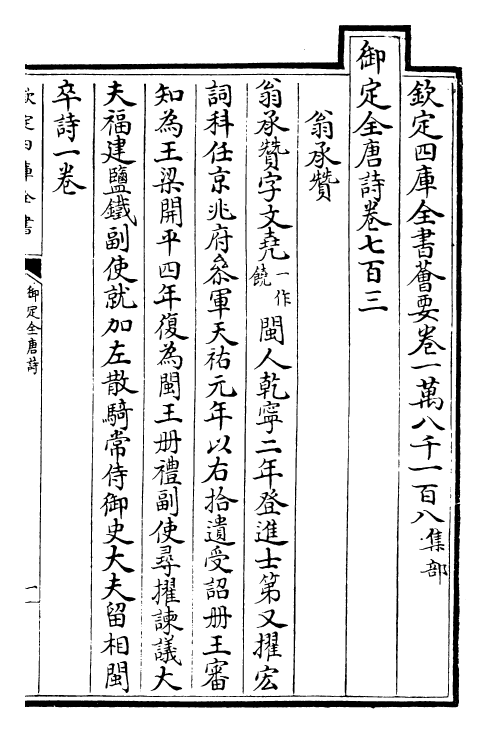 欽定四庫全書薈要卷一萬八千一百八集部
御定全唐詩卷七百三
翁承贊
翁承贊字文堯一作饒閩人乾寧二年登進士第又擢宏
詞科任京兆府叅軍天祐元年以右拾遺受詔册王審
知為王梁開平四年復為閩王册禮副使尋擢諫議大
夫福建鹽鐵副使就加左散騎常侍御史大夫留相閩
卒詩一卷
欽定四庫全書
御定全唐詩
一